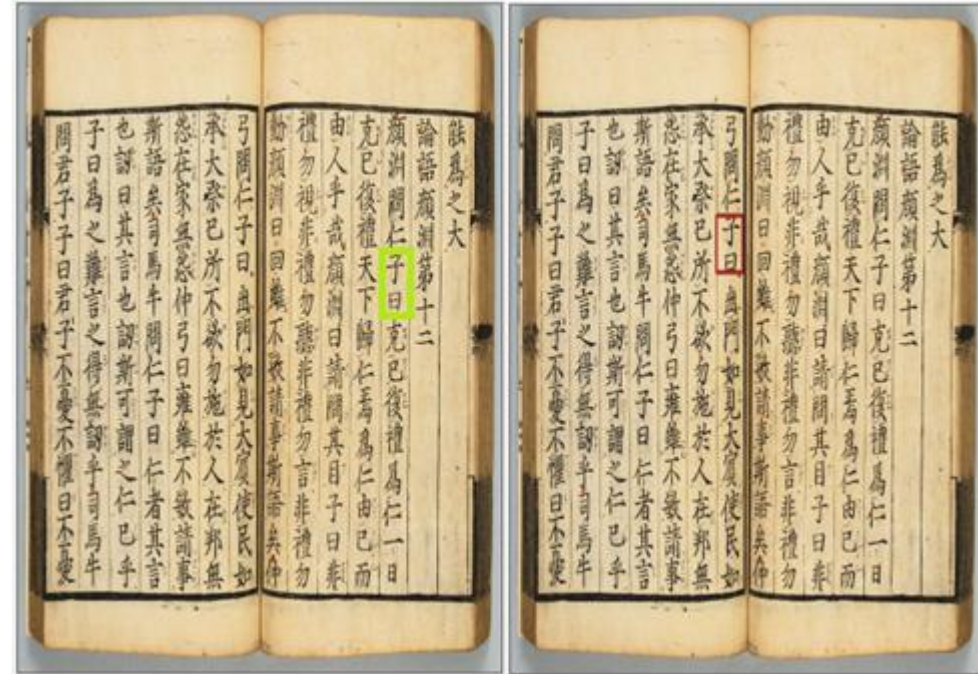 能爲之大
論語顏淵第十二
顏淵問仁子曰克已復禮爲仁一日
克已復禮天下歸仁焉爲仁由已而
由人乎哉顏淵曰請問其目子曰非
禮勿視非禮勿聽非禮勿言非禮勿
動顏淵曰回雖不敏請事斯語矣仲
弓問仁子曰出門如見大賓使民如
承大祭已所不欲勿施於人在邦無
怨在家無怨仲弓曰雍雖不敏請事
斯語矣司馬牛問仁子曰仁者其言
也訒曰其言也訒斯可謂之仁已乎
子曰爲之難言之得無訒乎司馬牛
問君子子曰君子不憂不懼曰不憂
能爲之大
論語顏淵第十二
顏淵問仁子曰克已復禮爲仁一日
克已復禮天下歸仁焉爲仁由已而
由人乎哉顏淵曰請問其目子曰非
禮勿視非禮勿聽非禮勿言非禮勿
動顏淵曰回雖不敏請事斯語矣仲
弓問仁子曰出門如見大賓使民如
承大祭已所不欲勿施於人在邦無
怨在家無怨仲弓曰雍雖不敏請事
斯語矣司馬牛問仁子曰仁者其言
也訒曰其言也訒斯可謂之仁已乎
子曰爲之難言之得無訒乎司馬牛
問君子子曰君子不憂不懼曰不憂